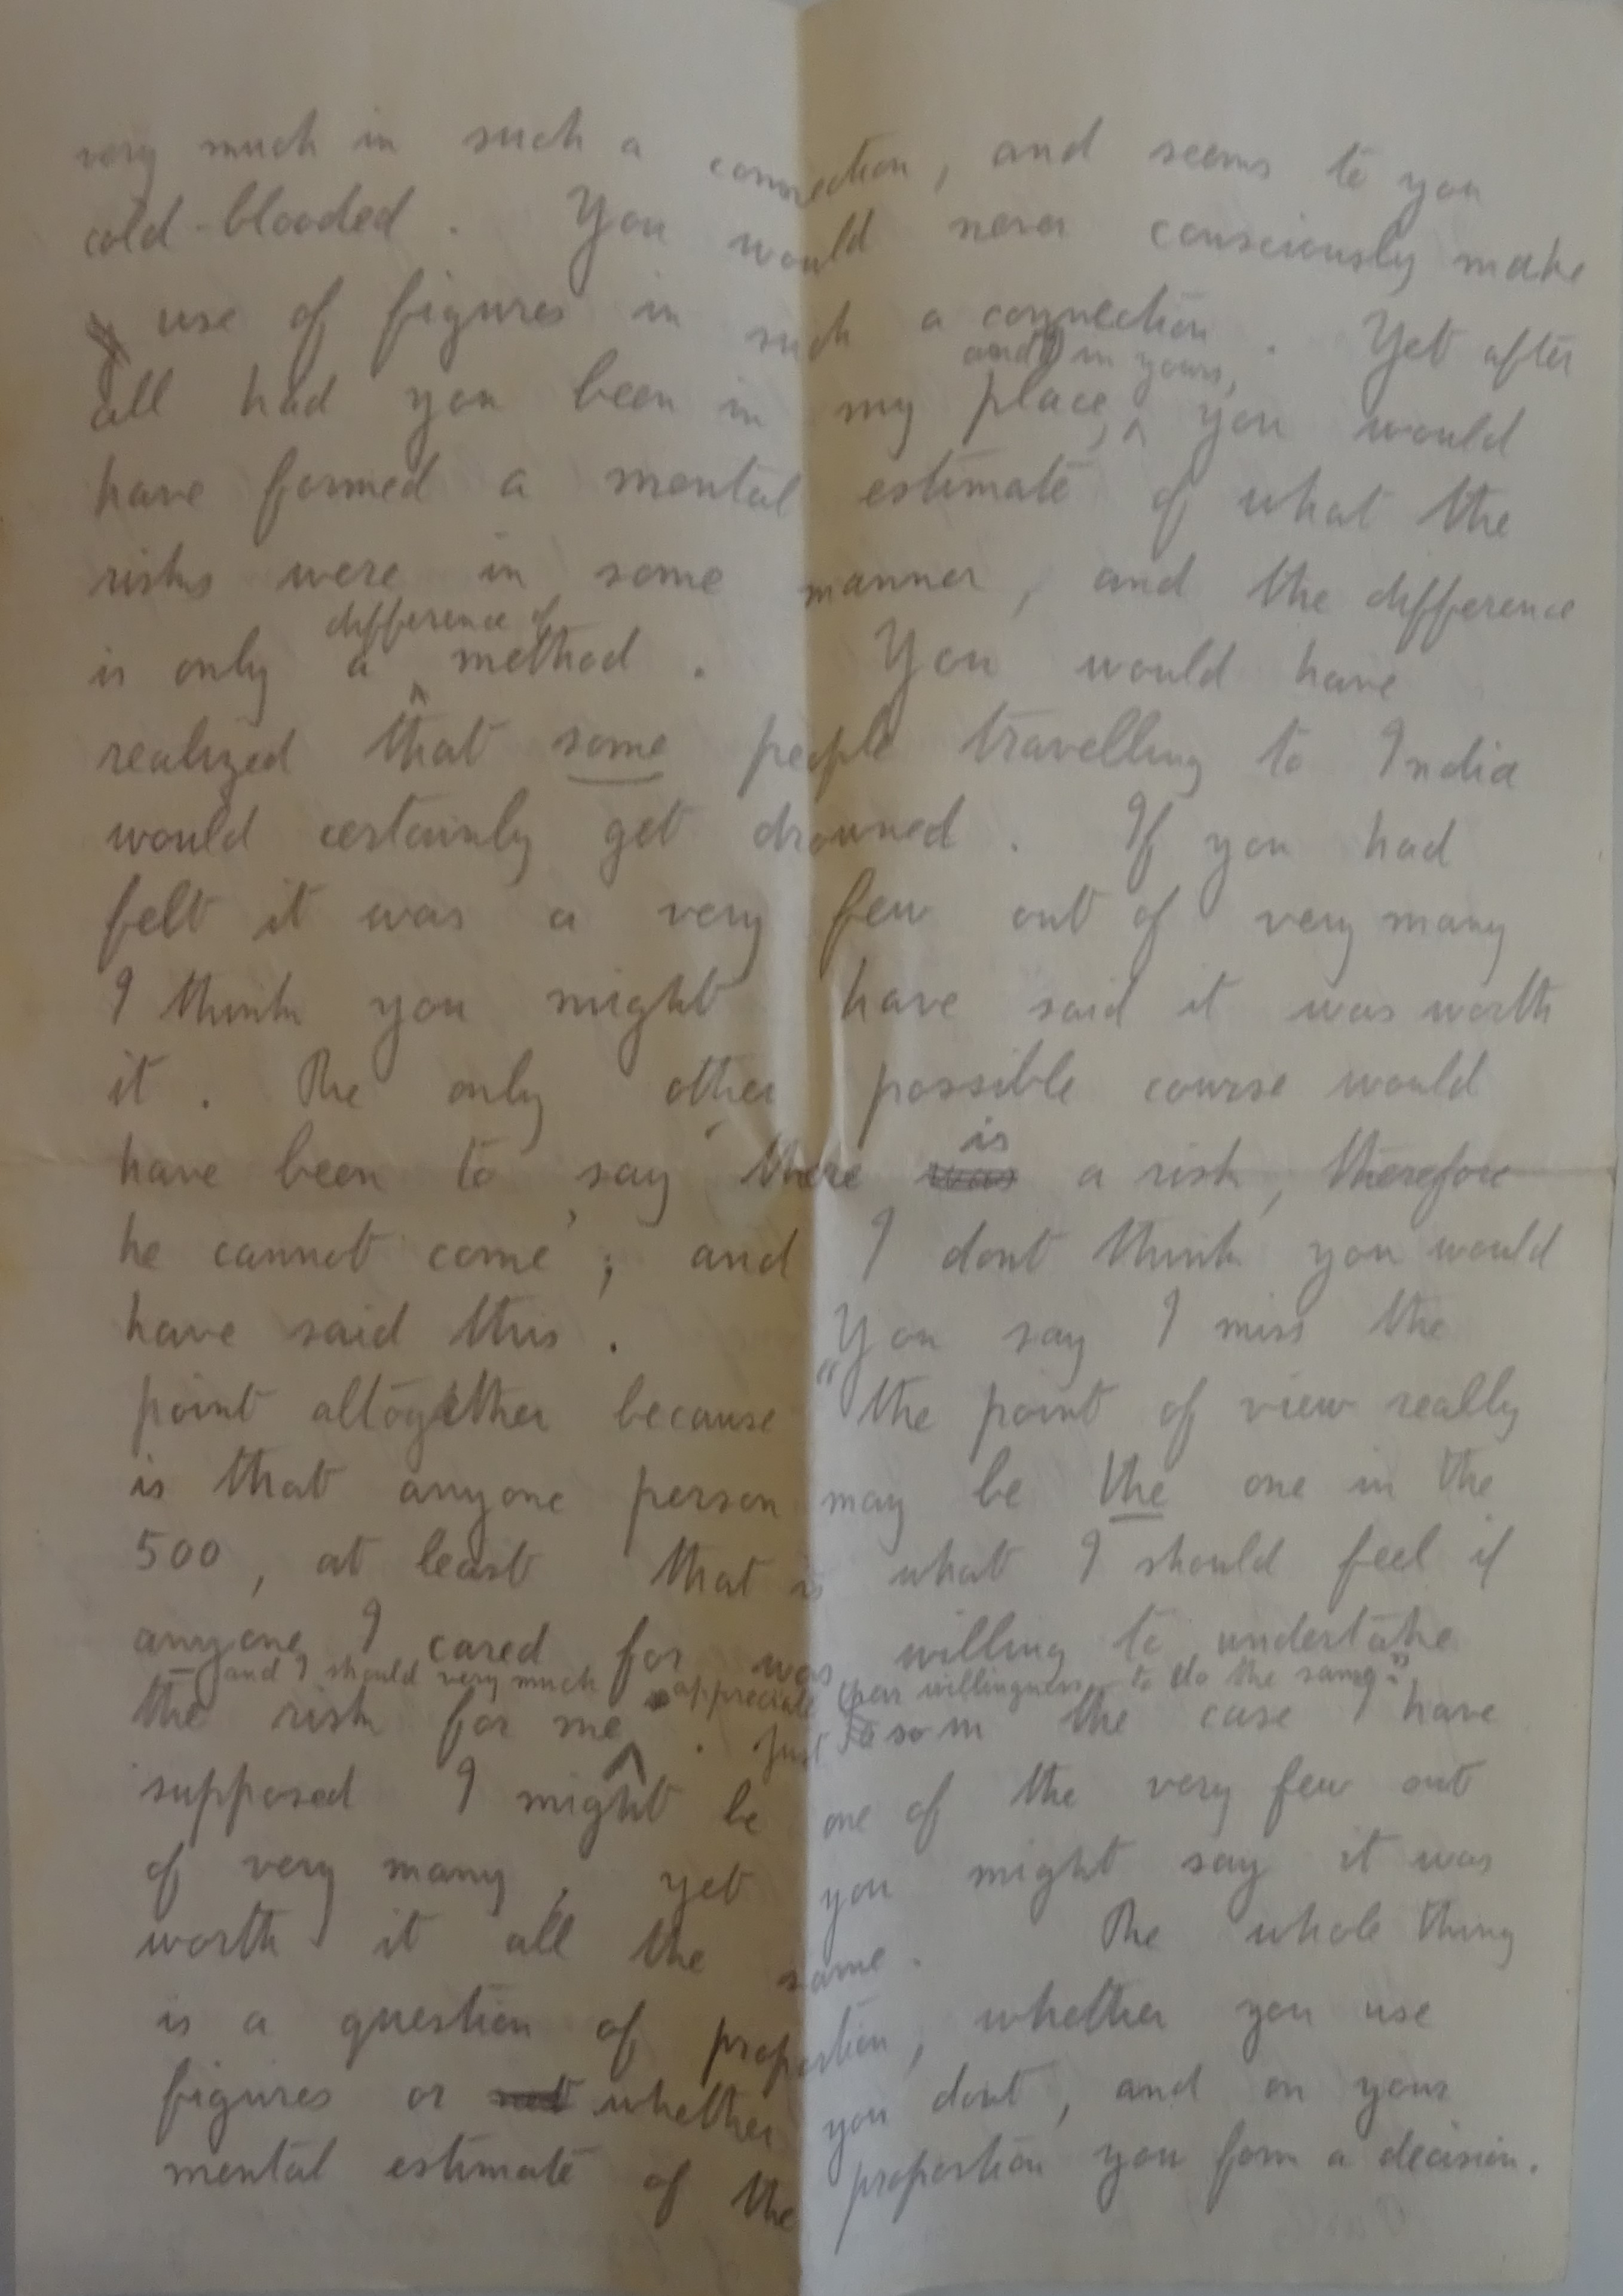 very much in such a connection, and seems to you
cold-blooded. You would never consciously make
use of figures in such a connection. Yet after
and in yours,
all had you been in my place, you would
have formed a mental estimate of what the
risks were in some manner, and the difference
difference of
is only a method. You would have
realized that some people travelling to India
would certainly get drowned. If you had
felt it was a very few out of very many
I think you might have said it was worth
it. The only other possible course would
is
have been to say there was a risk, therefore
he cannot come; and I dont think you would
have said this. You say I miss the
point altogether because "the point of view really
is that anyone person may be the one in the
500, at least that is what I should feel if
anyone I cared for was willing to undertake
and I should very much appreciate their willingness to do the same".
the risk for me. Just so in the case I have
supposed I might be one of the very few out
of very many, yet you might say it was
worth it all the same. The whole thing
is a question of proportion, whether you use
figures or whether you dont, and on your
mental estimate of the proportion you form a decision.